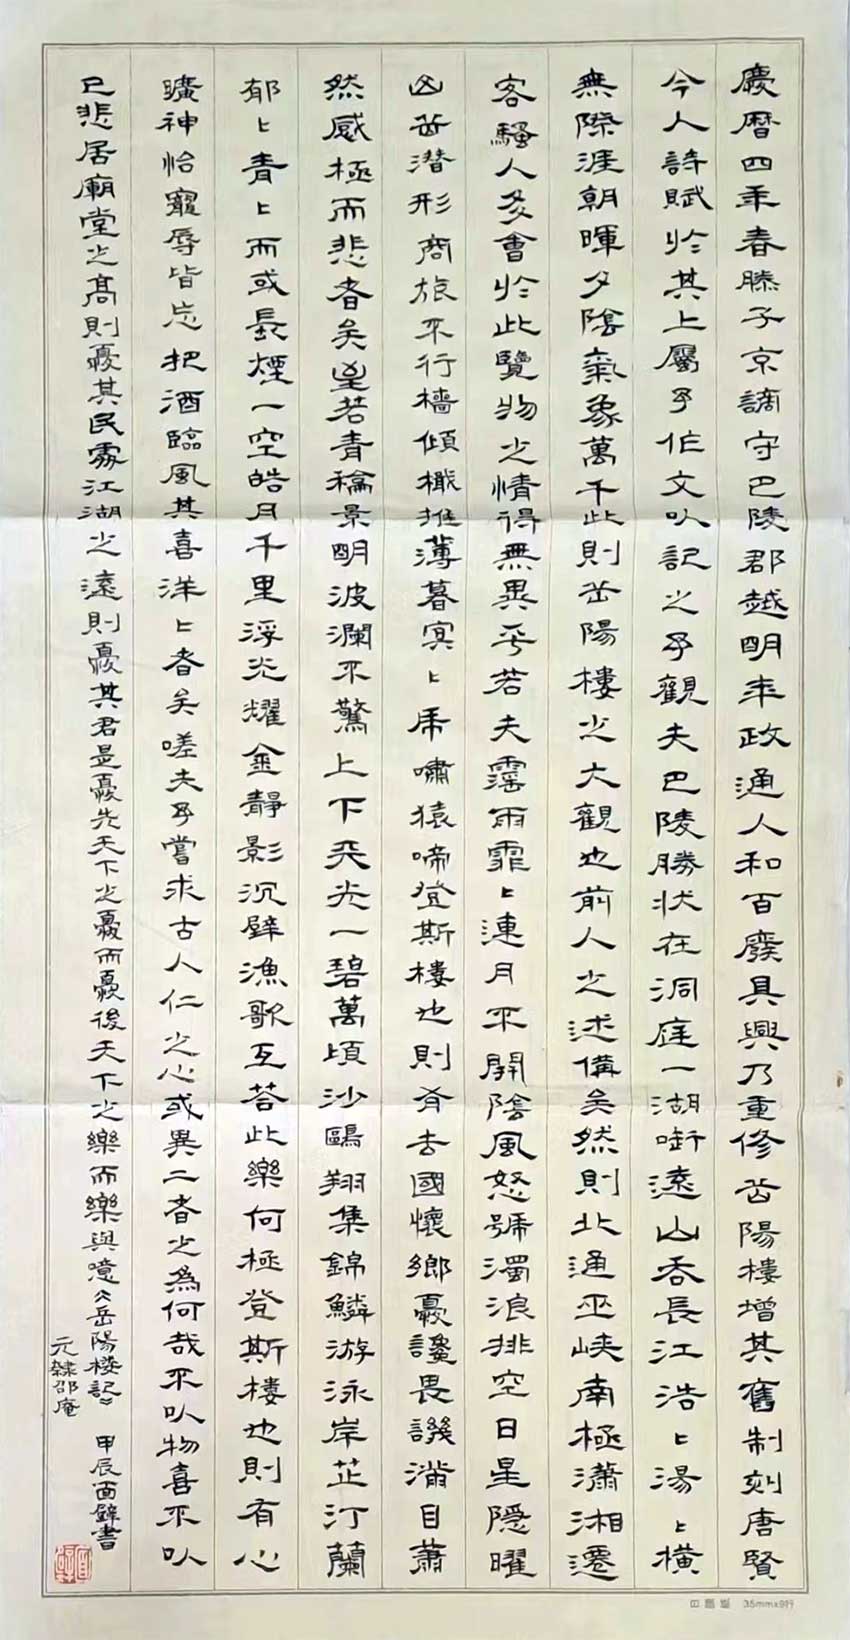 慶曆四年春滕子京謫守巴陵郡越明年政通人和百廢具興乃重修岳陽樓增其舊制刻唐賢
今人詩賦於其上屬予作文以記之予觀夫巴陵勝狀在洞庭一湖銜遠山吞長江浩〻湯〻橫
無際涯朝暉夕陰氣象萬千此則岳陽樓之大觀也前人之述備矣然則北通巫峽南極瀟湘遷
客騷人多會於此覽物之情得無異乎若夫霪雨霏〻連月不開陰風怒號濁浪排空日星隱曜
山岳潛形商旅不行檣傾檝摧薄暮冥〻虎嘯猿啼登斯樓也則有去國懷鄉憂讒畏譏滿目蕭
然感極而悲者矣至若景明波瀾不驚上下天光一碧萬頃沙鷗翔集錦鱗游泳岸芷汀蘭
郁〻青〻而或長煙一空皓月千里浮光耀金靜影沉璧漁歌互答此樂何極登斯樓也則有心
曠神怡寵辱皆忘把酒臨風其喜洋〻者矣嗟夫予嘗求古人仁之心或異二者之為何哉不以物喜不以
己悲居廟堂之高則憂其民處江湖之遠則憂其君是憂先天下之憂而憂後天下之樂而樂與噫《岳陽樓記》 甲辰面壁書
元隸邵庵
35mmx9行